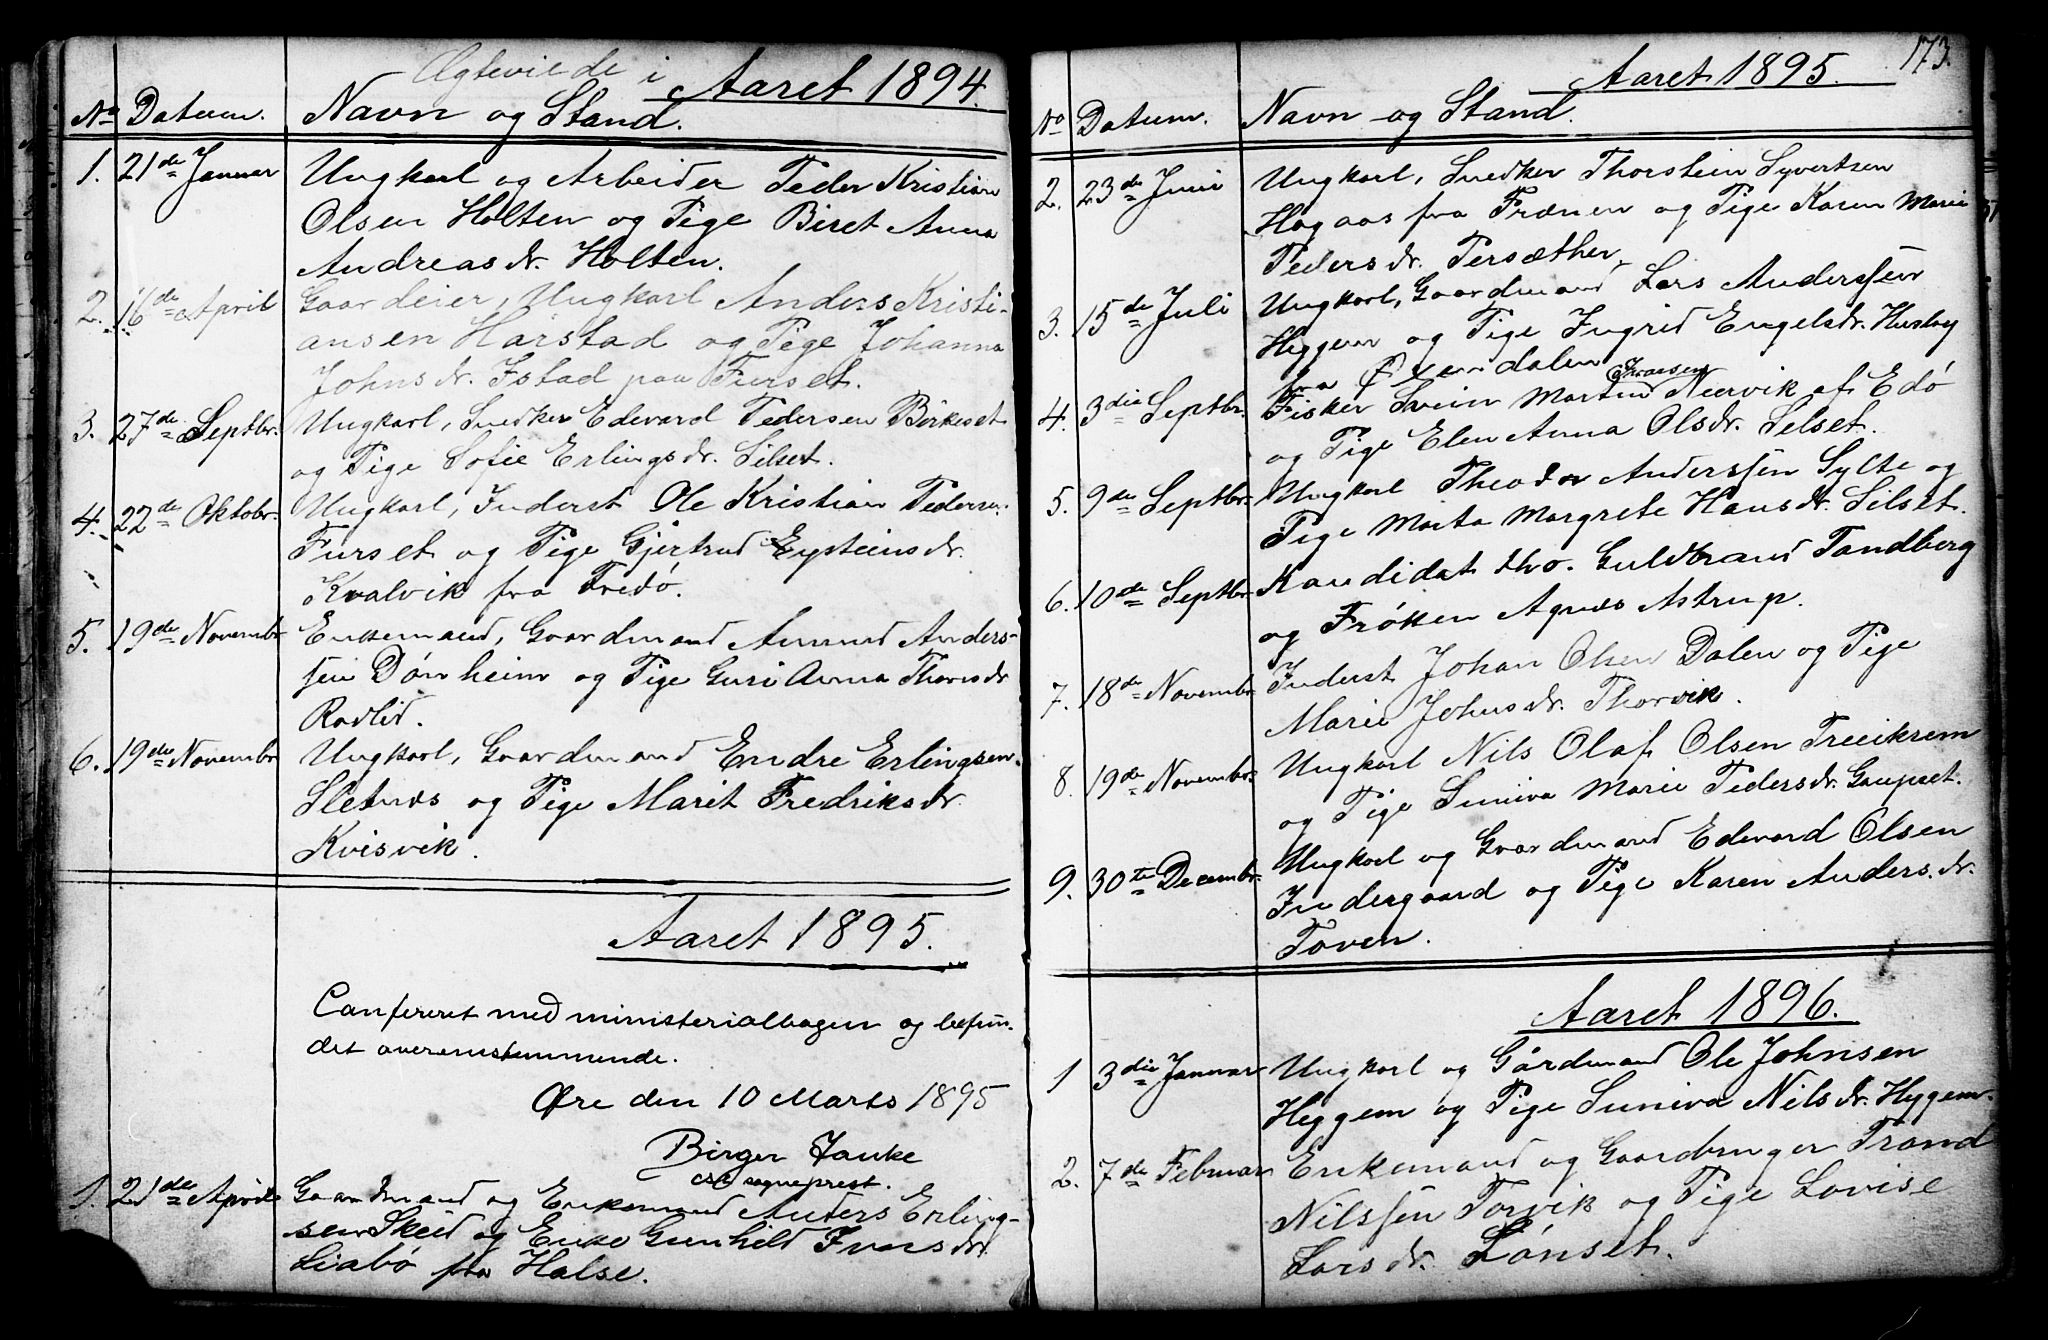 Ægteviede i Aaret 1894.
No Datum. Navn og Stand.
1. 21de Januar Ungkarl og Arbeider Peder Kristian
Olsen Holten og Pige Beret Anna
Andreasdr. Holten.
2. 16de April Gaardeier, Ungkarl Anders Kristi-
ansen Harstad og Pige Johanna
Johnsdr. Istad paa Furset.
3. 27de Septbr. Ungkarl, Snedker Edevard Pedersen Birkeset
og Pige Sofie Erlingsdr. Silset.
4. 22de Oktobr. Ungkarl, Inderst Ole Kristian Pedersen
Furset og Pige Gjertrud Eysteinsdr.
Kvalvik fra Fredø.
5. 19de Novembr Enkemand, Gaardmand Amund Anders-
sen Dønheim og Pige Guri Anna Thoresdr
Rødlid.
6. 19de Novembr Ungkarl, Gaardmand Endre Erlingsen
Sletnes og Pige Marit Fredriksdr.
Kvisvik.
Aaret 1895.
Confereret med ministerialbogen og befun-
det overensstemmende.
Øre den 10 Marts 1895
Birger Janke
cst sogneprest.
1. 21de April Gaardmand og Enkemand Anders Erling-
sen Skeid og Enke Gunhild Iversdr
Liabø fra Halse.
173.
Aaret 1895.
No Datum. Navn og Stand.
2. 23de Juni Ungkarl, Snedker Thorstein Syvertsen
Hagaas fra Frænen og Pige Karen Marie
Pedersdr. Persæther.
3. 15de Juli Ungkarl, Gaardmand Lars Anderssen
Heggem og Pige Ingrid Engelsdr. Husby
fra Øxendalen
4. 3die Septbr. Fisker Svein Martin Nervik af Edø
og Pige Elen Anna Olsdr. Silset.
5. 9de Septbr. Ungkarl Theodor Anderssen Sylte og
Pige Marta Margrete Hansdr. Silset.
6. 10de Septbr. Kandidat theo. Guldbrand Tandberg
og Frøken Agnes Astrup.
7. 18de Novembr. Inderst Johan Olsen Dalen og Pige
Marie Johnsdr. Thorvik.
8. 19de Novembr. Ungkarl Nils Olaf Olsen Treeikrem
og Pige Suniva Marie Pedersdr. Gaupset.
9. 30te Decembr. Ungkarl og Gaardmand Edevard Olsen
Indergaard og Pige Karen Andersdr.
Toven.
Aaret 1896.
1 3die Januar Ungkarl og Gårdmand Ole Johnsen
Heggem og Pige Suniva Nilsdr. Heggem.
2. 7de Februar Enkemand og Gaardbruger Trond
Nilssen Torvik og Pige Lovise
Larsdr. Lønset.